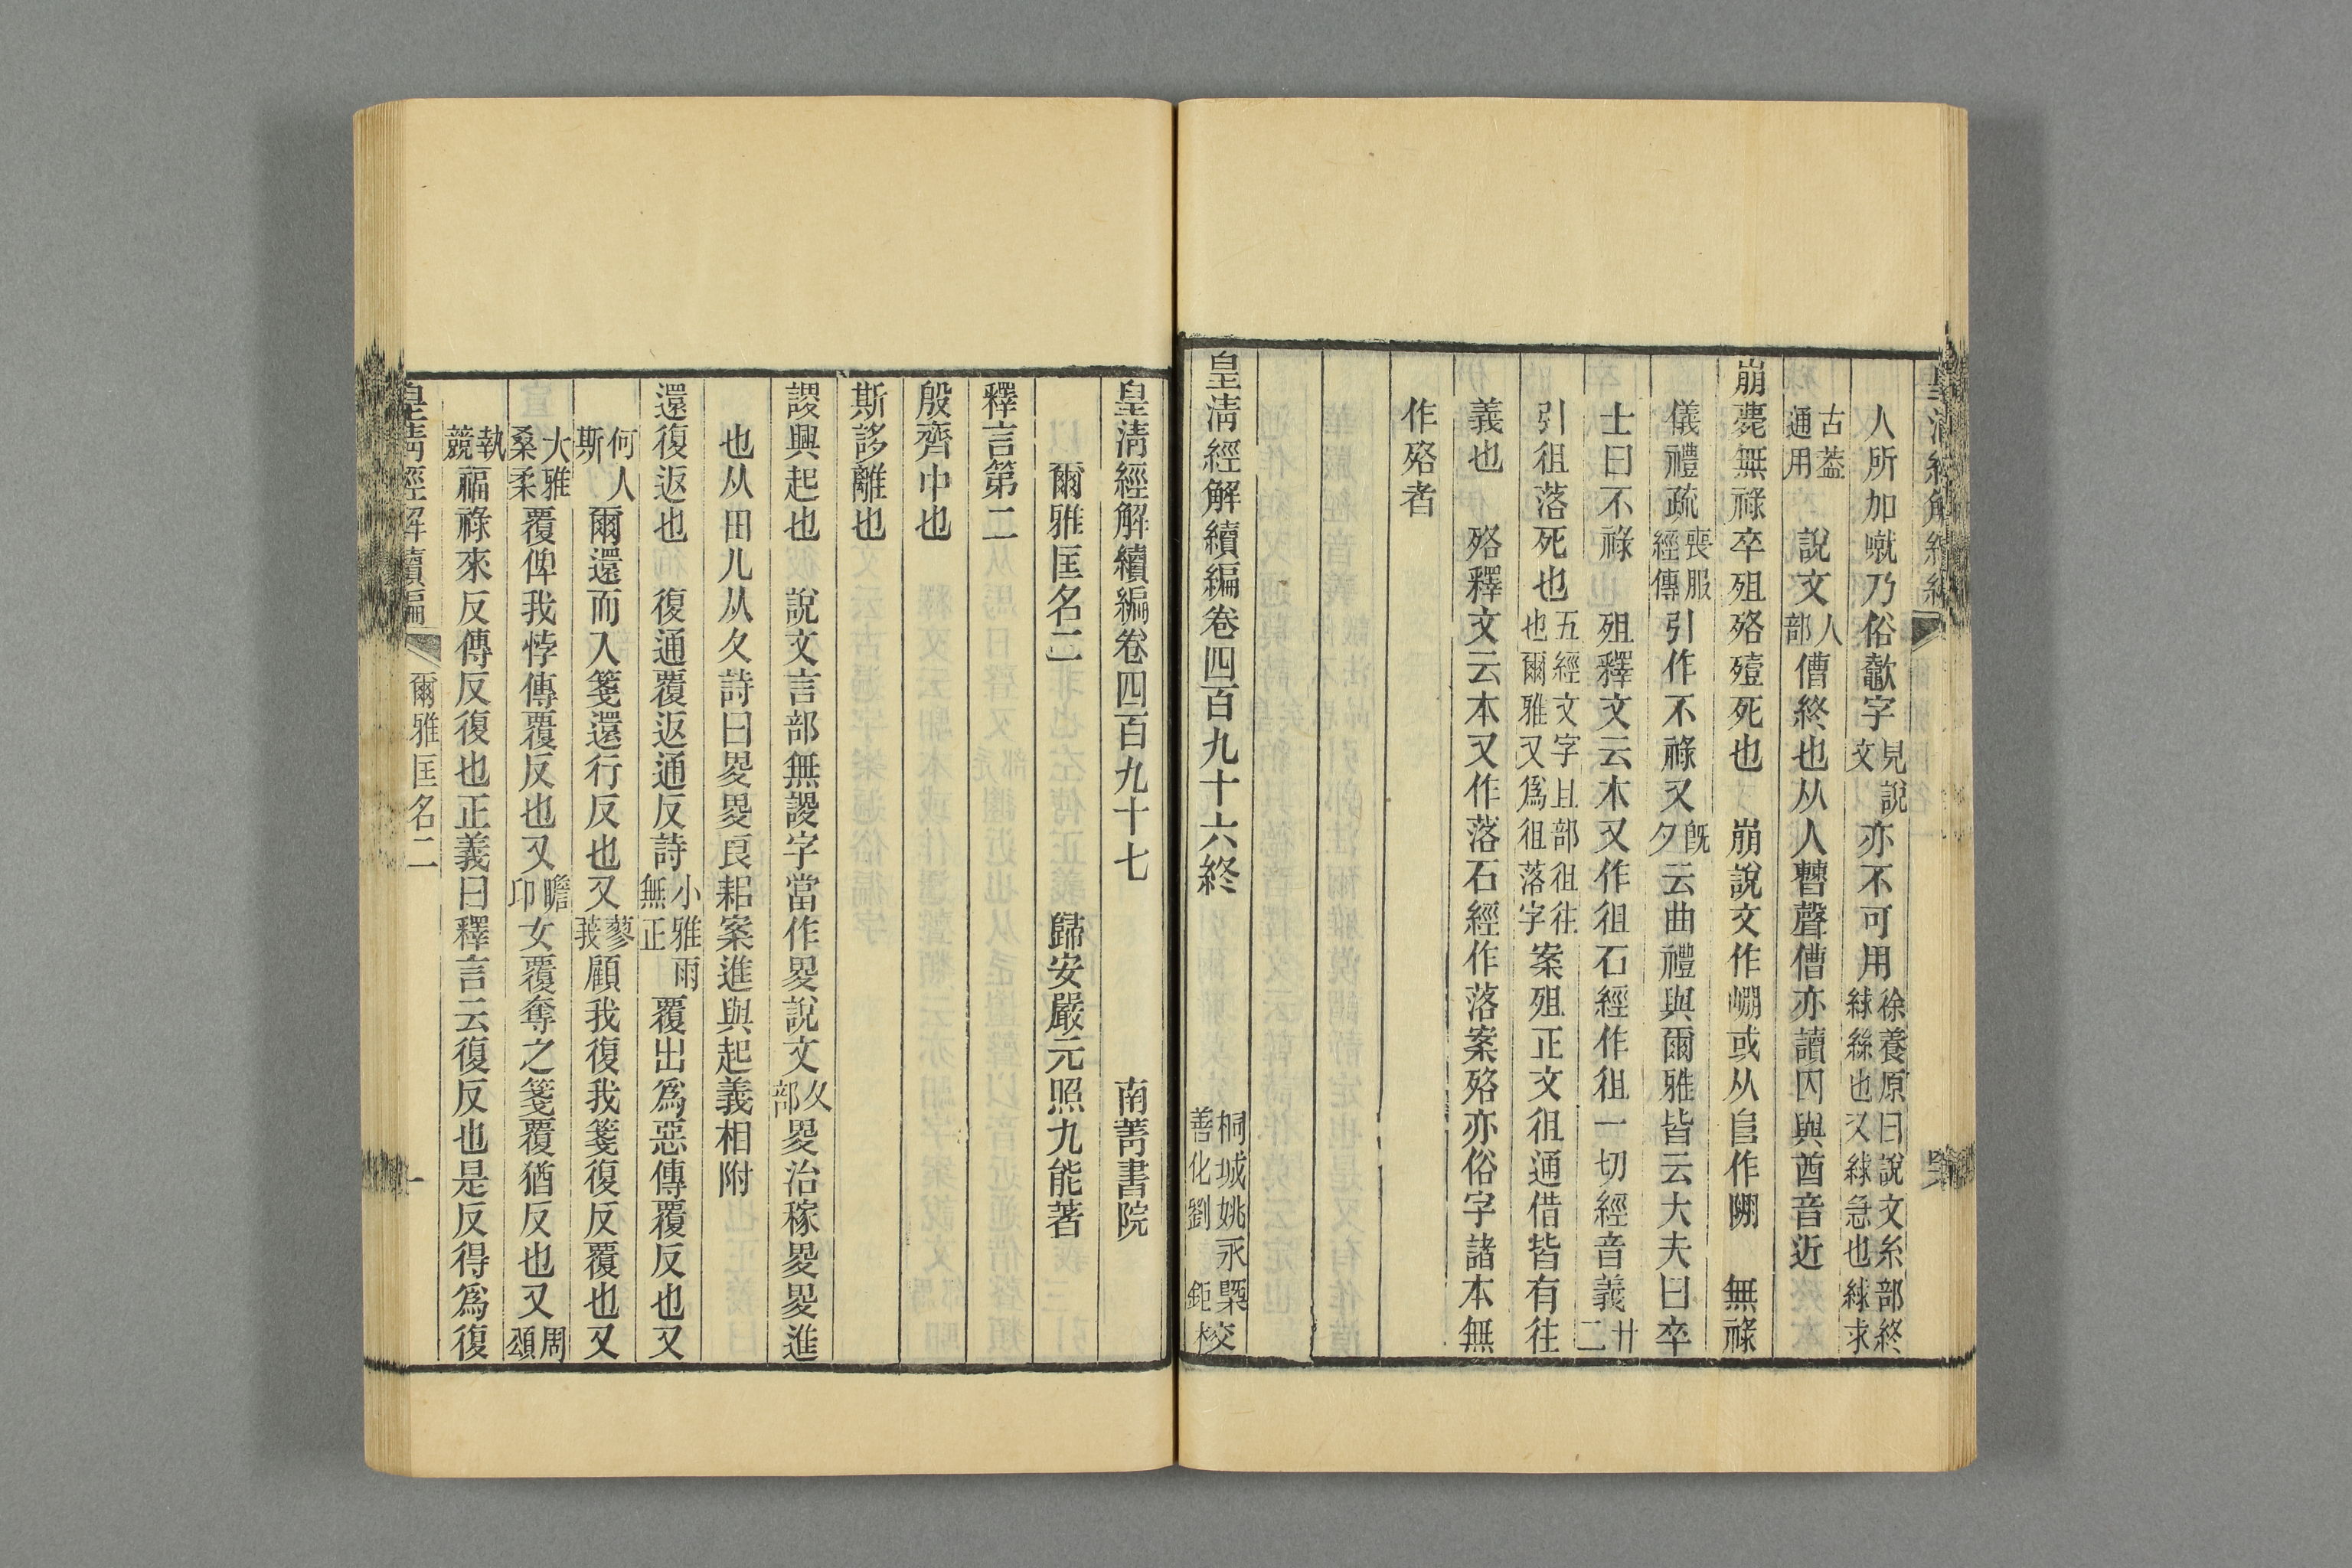 人所加噈乃俗歗字見說文亦不可用徐養原曰說文糸部終絿絲也又絿急也絿求
古葢通用　說文人部傮終也从人朁聲傮亦讀囚與酋音近
崩薨無祿卒殂殆殪死也　崩說文作嘣或从𠂤作𨹹　無祿
儀禮疏喪服經傳引作不祿又旣夕云曲禮與爾雅皆云大夫曰卒
士曰不祿　殂釋文云本又作徂石經作徂一切經音義廿二
引徂落死也五經文字且部徂往也爾雅又爲徂落字案殂正文徂通借皆有往
義也　殆釋文云本又作落石經作落案殆亦俗字諸本無
作殆者
皇淸經解續編卷四百九十六終　桐城姚永㮣善化劉鉅校交
皇淸經解續編卷四百九十七　南菁書院
爾雅匡名二　歸安嚴元照九能著
釋言第二
殷齊中也
斯誃離也
謖興起也　說文言部無謖字當作畟說文夊部畟治稼畟畟進
也从田儿从夊詩曰畟畟良耜案進與起義相附
還復返也　復通覆返通反詩小雅雨無正覆出爲惡傳覆反也又
何人斯爾還而入箋還行反也又蓼莪顧我復我箋復反覆也又
大雅桑柔覆俾我悖傳覆反也又瞻卬女覆奪之箋覆猶反也又周頌
執競福祿來反傳反復也正義曰釋言云復反也是反得爲復
皇淸經解續編　爾雅匡名二　一